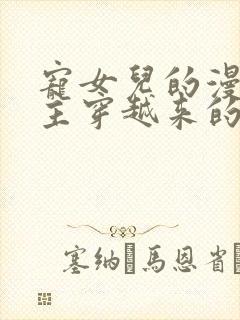 寵女兒的漫
主穿越來的
塞納 馬恩省